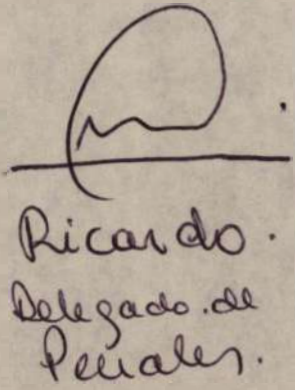 Ricardo.
Delegado.de
Penales.